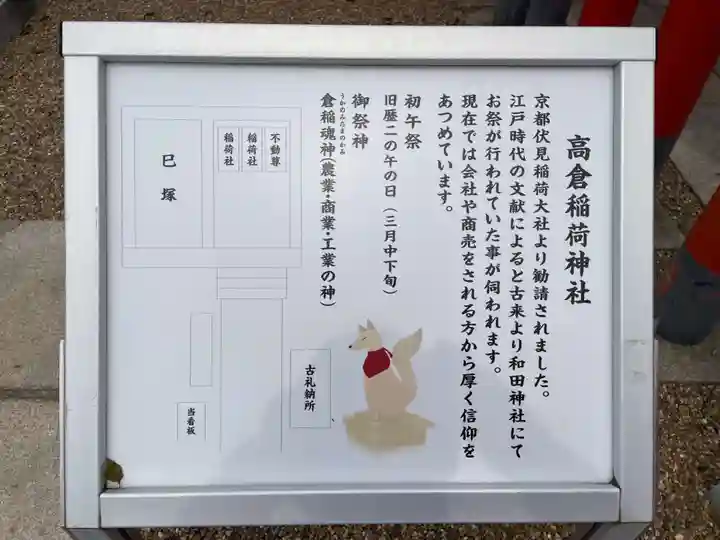 高倉稲荷神社
京都伏見稲荷大社より勧請されました。
江戸時代の文献によると古来より和田神社にて
お祭が行われていた事が伺われます。
現在では会社や商売をされる方から厚く信仰を
あつめています。
初午祭
旧暦二の午の日（三月中下旬）
御祭神
うかのみたまのかみ
倉稲魂神（農業・商業・工業の神）
不動尊
稲荷社
稲荷社
巳塚
古札納所
当看板